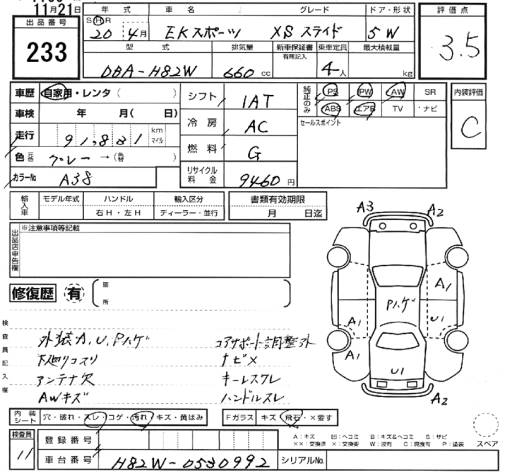 11月21日
出品番号
233
年式 車名 グレード ドア・形状
20 4月 EKスポーツ XSスライド 5W
型式 排気量 新車保証書 有無記入 乗車定員 最大積載量
DBA-H82W 660cc 4人 kg
評価点
3.5
車歴 自家用・レンタ( )
車検 年 月( 日)
走行 91,831 km マイル
色 グレー→( )
カラーNo A38
シフト 1AT
冷房 AC
燃料 G
リサイクル料金 9460円
純正のみ PS PW AW SR
ABS エアB TV ナビ
セールスポイント
内装評価
C
輸入車 モデル年式 ハンドル 輸入区分
右H・左H ディーラー・並行
書類有効期限
月 日迄
※注意事項等記載
修復歴 有
箇所
検査員記入欄
外装A.U.Pハゲ
下廻りコスリ
アンテナ欠
AWキズ
コアサポート調整外
ナビ×
キーレスクレ
ハンドルスレ
A3 A2
A1
Pハゲ
A1 U1
A1
U1
A2
スペア
内装シート 穴・破れ・スレ・コゲ・汚れ・キズ・黄ばみ
Fガラス キズ・飛石・×要す
A:キズ U:ヘコミ B:キズ&ヘコミ S:サビ
検査員
11
登録番号
車台番号 H82W-0530992
シリアルNo.